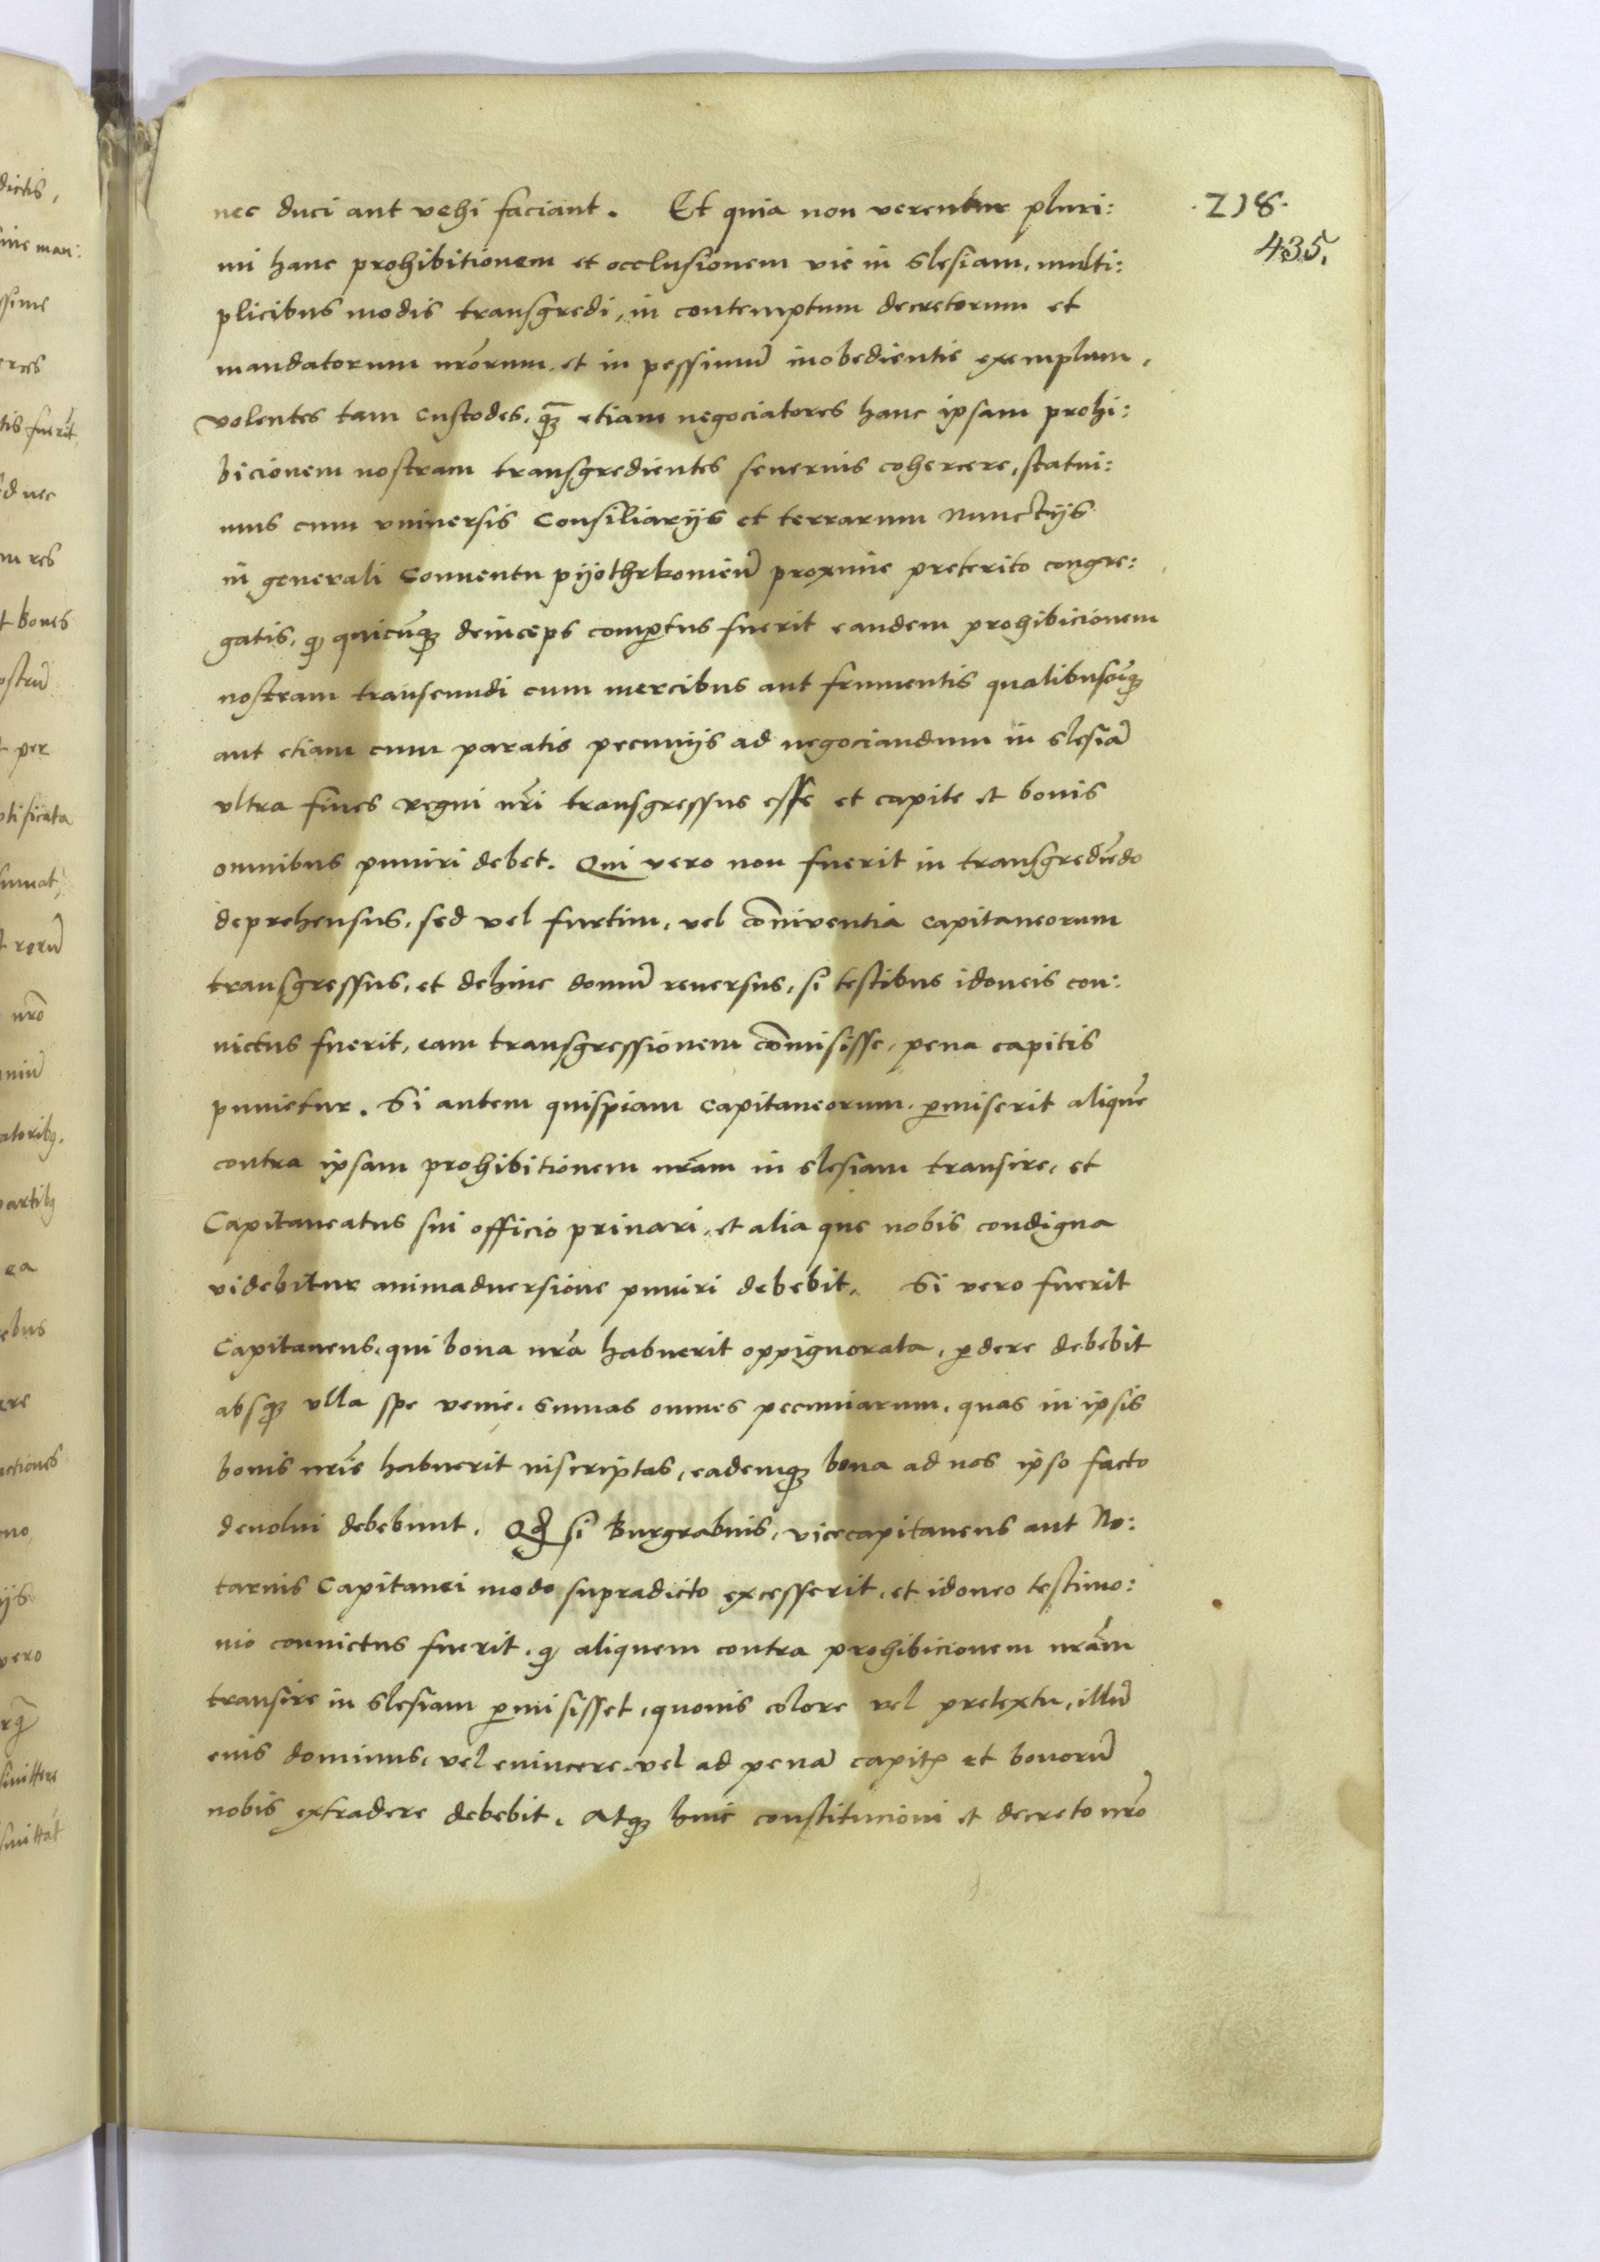 nec duci aut vehi faciant. Et quia non verentur pluri:
mi hanc prohibitionem et occlusionem vie in Slesiam, multi:
plicibus modis transgredi, in contemptum decretorum et
mandatorum nr̃orum, et in pessimũ inobedientie exemplum,
volentes tam Custodes, q̃ꝫ etiam negociatores hanc ipsam prohi:
bicionem nostram transgredientes severius cohercere, statui:
mus cum vniversis Consiliarijs et terrarum Nunctijs
in generali Conuentu pijothrkovieñ proxime preterito congre:
gatis, ꝙ quicũqꝫ deinceps comꝑtus fuerit eandem prohibicionem
nostram transeundi cum mercibus aut frumentis qualibuscũqꝫ
aut etiam cum paratis pecunijs ad negociandum in Slesiã
vltra fines regni nr̃i transgressus esse et capite et bonis
omnibus puniri debet. Qui vero non fuerit in transgrediẽdo
deprehensus, sed vel furtim, vel cõniventia Capitaneorum
transgressus, et dehinc domũ reuersus, si testibus idoneis con:
uictus fuerit, eam transgressionem cõmisisse, pena capitis
punietur. Si autem quispiam Capitaneorum ꝑmiserit aliquẽ
contra ipsam prohibitionem nr̃am in Slesiam transire, et
Capitaneatus sui officio priuari, et alia que nobis condigna
videbitur animaduersione puniri debebit. Si vero fuerit
Capitaneus, qui bona nr̃a habuerit oppignorata, ꝑdere debebit
absqꝫ vlla spe venie, sumas omnes pecuniarum, quas in ipsis
bonis nr̃is habuerit inscriptas, eademqꝫ bona ad nos ipso facto
deuolui debebunt. Qđ si Burgrabius, vicecapitaneus aut No:
tarius Capitanei modo supradicto excesserit, et idoneo testimo:
nio conuictus fuerit, ꝙ aliquem contra prohibicionem nr̃am
transire in Slesiam ꝑmisisset, quouis colore vel pretextu, illũ
eius dominus, vel euincere, vel ad penã capitꝭ et bonorũ
nobis extradere debebit. Atqꝫ huic constitucioni et decreto nr̃o
.218.
435.